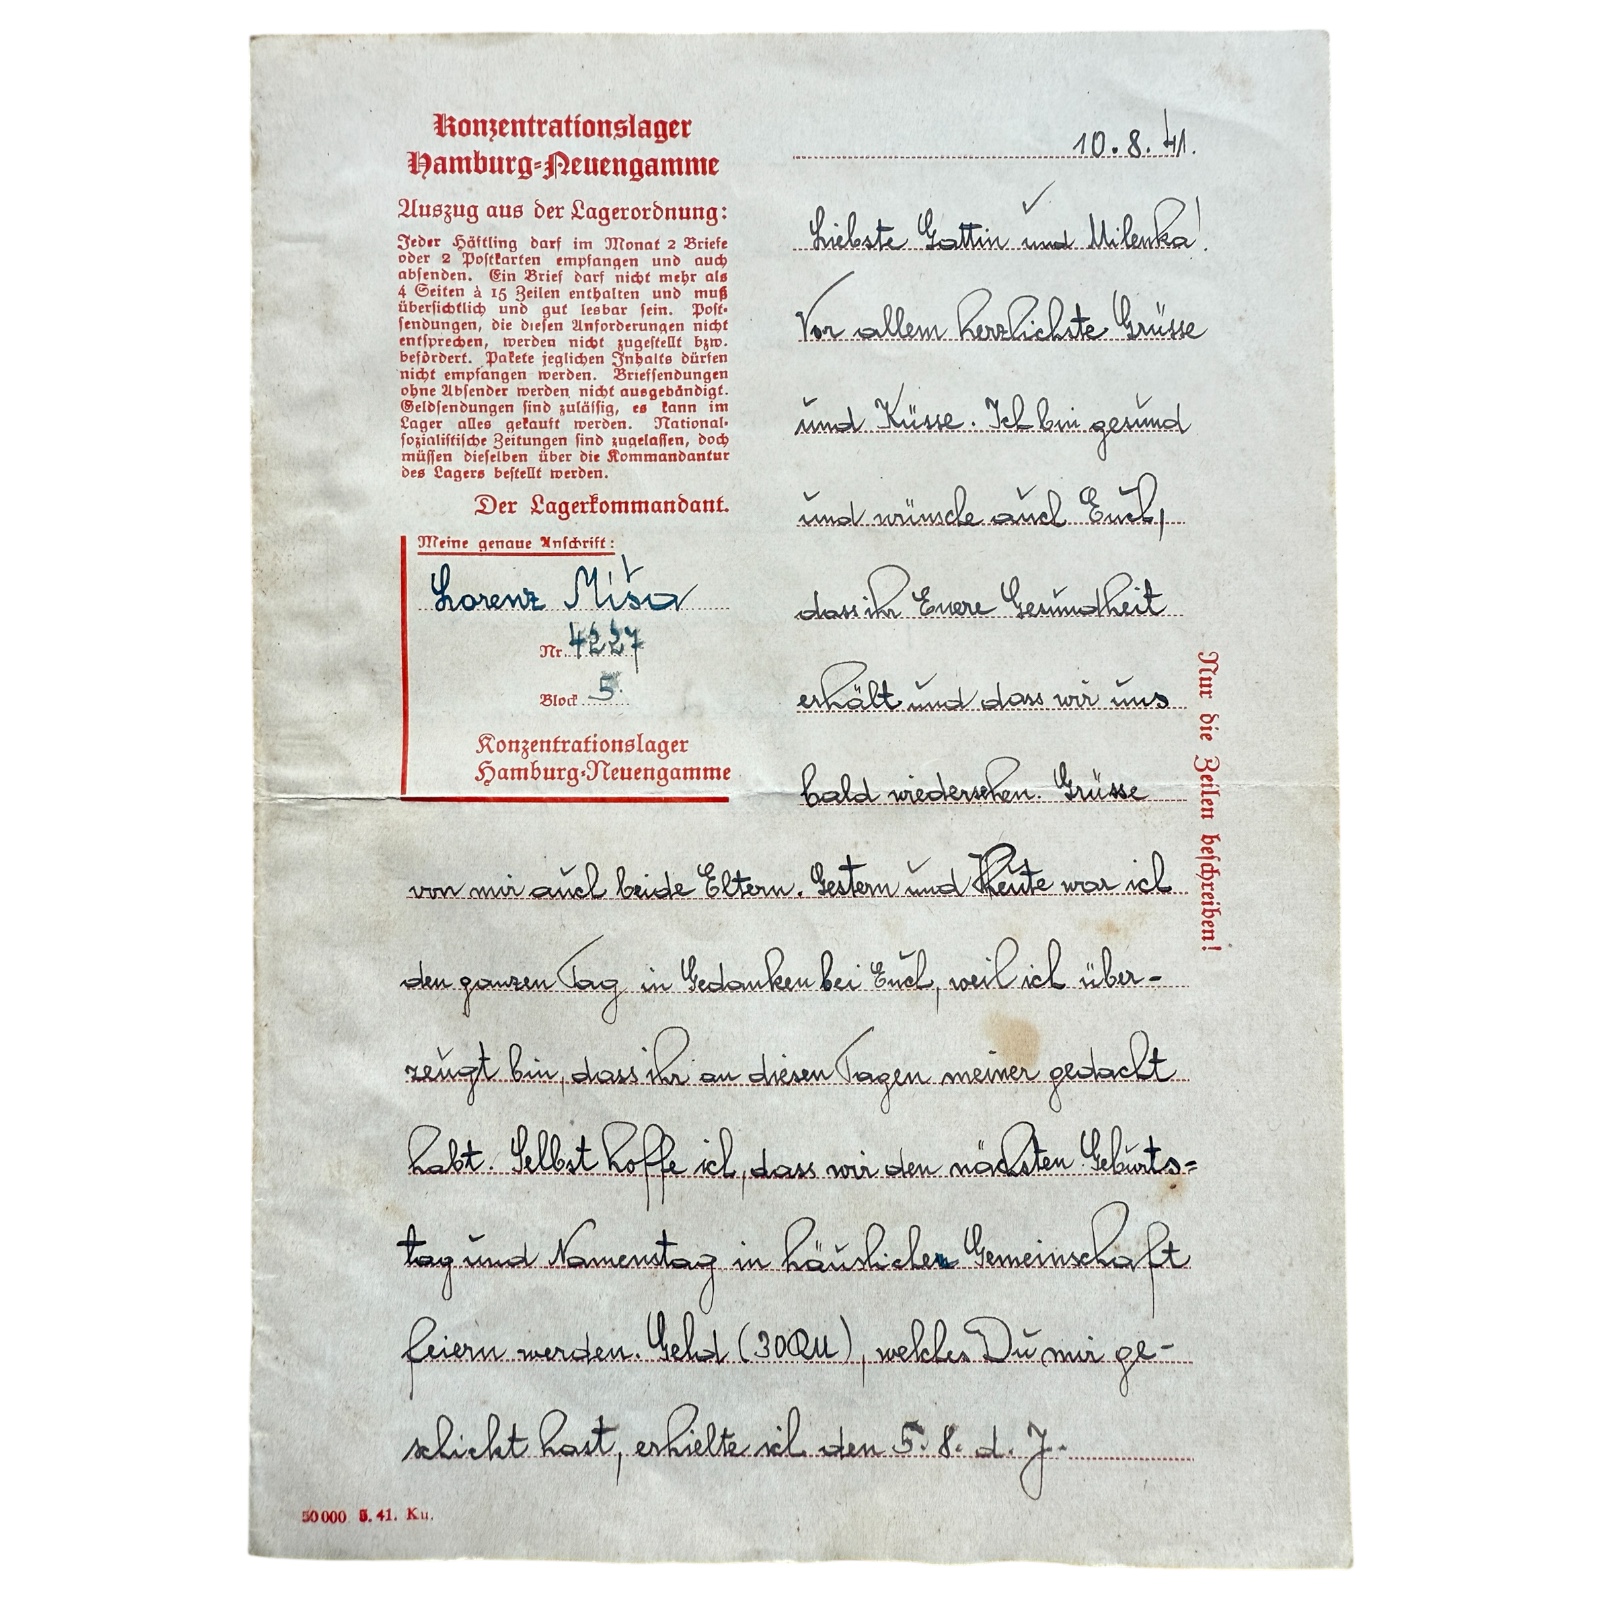 Konzentrationslager
Hamburg-Neuengamme
Auszug aus der Lagerordnung:
Jeder Häftling darf im Monat 2 Briefe
oder 2 Postkarten empfangen und auch
absenden. Ein Brief darf nicht mehr als
4 Seiten à 15 Zeilen enthalten und muß
übersichtlich und gut lesbar sein. Post-
sendungen, die diesen Anforderungen nicht
entsprechen, werden nicht zugestellt bzw.
befördert. Pakete jeglichen Inhalts dürfen
nicht empfangen werden. Briefsendungen
ohne Absender werden nicht ausgehändigt.
Geldsendungen sind zulässig, es kann im
Lager alles gekauft werden. National-
sozialistische Zeitungen sind zugelassen, doch
müssen dieselben über die Kommandantur
des Lagers bestellt werden.
Der Lagerkommandant.
Meine genaue Anschrift:
Lorenz Miša
Nr. 4227
Block 5.
Konzentrationslager
Hamburg-Neuengamme
10.8.41.
Liebste Gattin und Milenka!
Vor allem herzlichste Grüsse
und Küsse. Ich bin gesund
und wünsche auch Euch,
dass ihr Euere Gesundheit
erhält und dass wir uns
bald wiedersehen. Grüsse
von mir auch beide Eltern. Gestern und Heute war ich
den ganzen Tag in Gedanken bei Euch, weil ich über-
zeugt bin, dass ihr an diesen Tagen meiner gedacht
habt. Selbst hoffe ich, dass wir den nächsten Geburts-
tag und Namenstag in häuslichen Gemeinschaft
feiern werden. Gehd (30RM), welches Du mir ge-
schickt hast, erhielte ich den 5. 8. d. J.
Nur die Zeilen beschreiben!
50000 5.41. Ku.